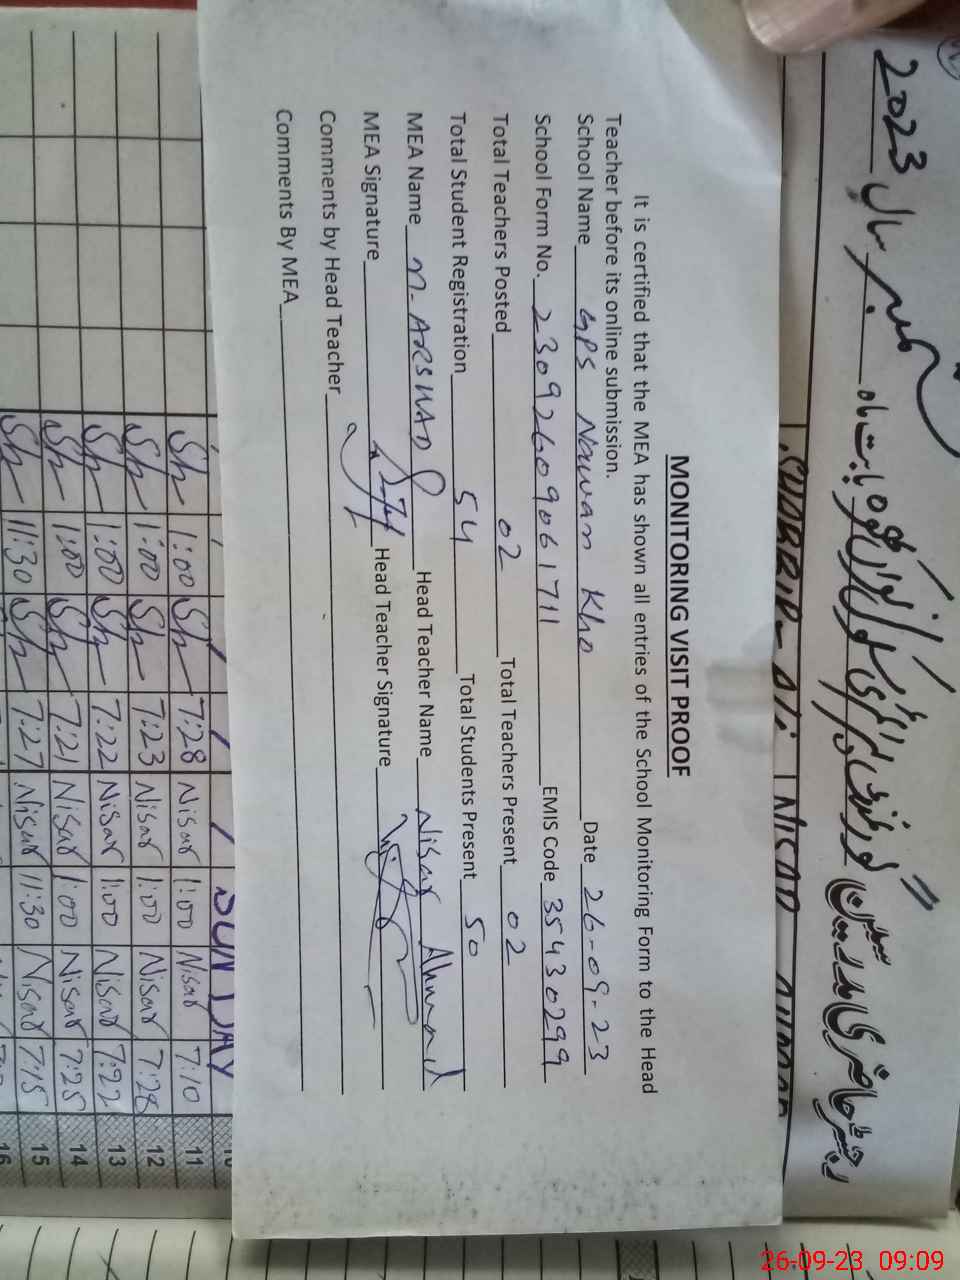 MONITORING VISIT PROOF
It is certified that the MEA has shown all entries of the School Monitoring Form to the Head
Teacher before its online submission.
School Name GPS Nawan Kho Date 26-09-23
School Form No. 23092609061711 EMIS Code 35430299
Total Teachers Posted 02 Total Teachers Present 02
Total Student Registration 54 Total Students Present 50
MEA Name M. ARSHAD Head Teacher Name Nisar Ahmad
MEA Signature Head Teacher Signature
Comments by Head Teacher
Comments By MEA
2023
SUNDAY
11 7:10 Nisar 1:00 Nisar 7:28 Sh 1:00 Sh
12 7:28 Nisar 1:00 Nisar 7:23 Sh 1:00 Sh
13 7:22 Nisar 1:00 Nisar 7:22 Sh 1:00 Sh
14 7:25 Nisar 1:00 Nisar 7:21 Sh 1:00 Sh
15 7:15 Nisar 11:30 Nisar 7:27 Sh 11:30 Sh
16
26-09-23 09:09